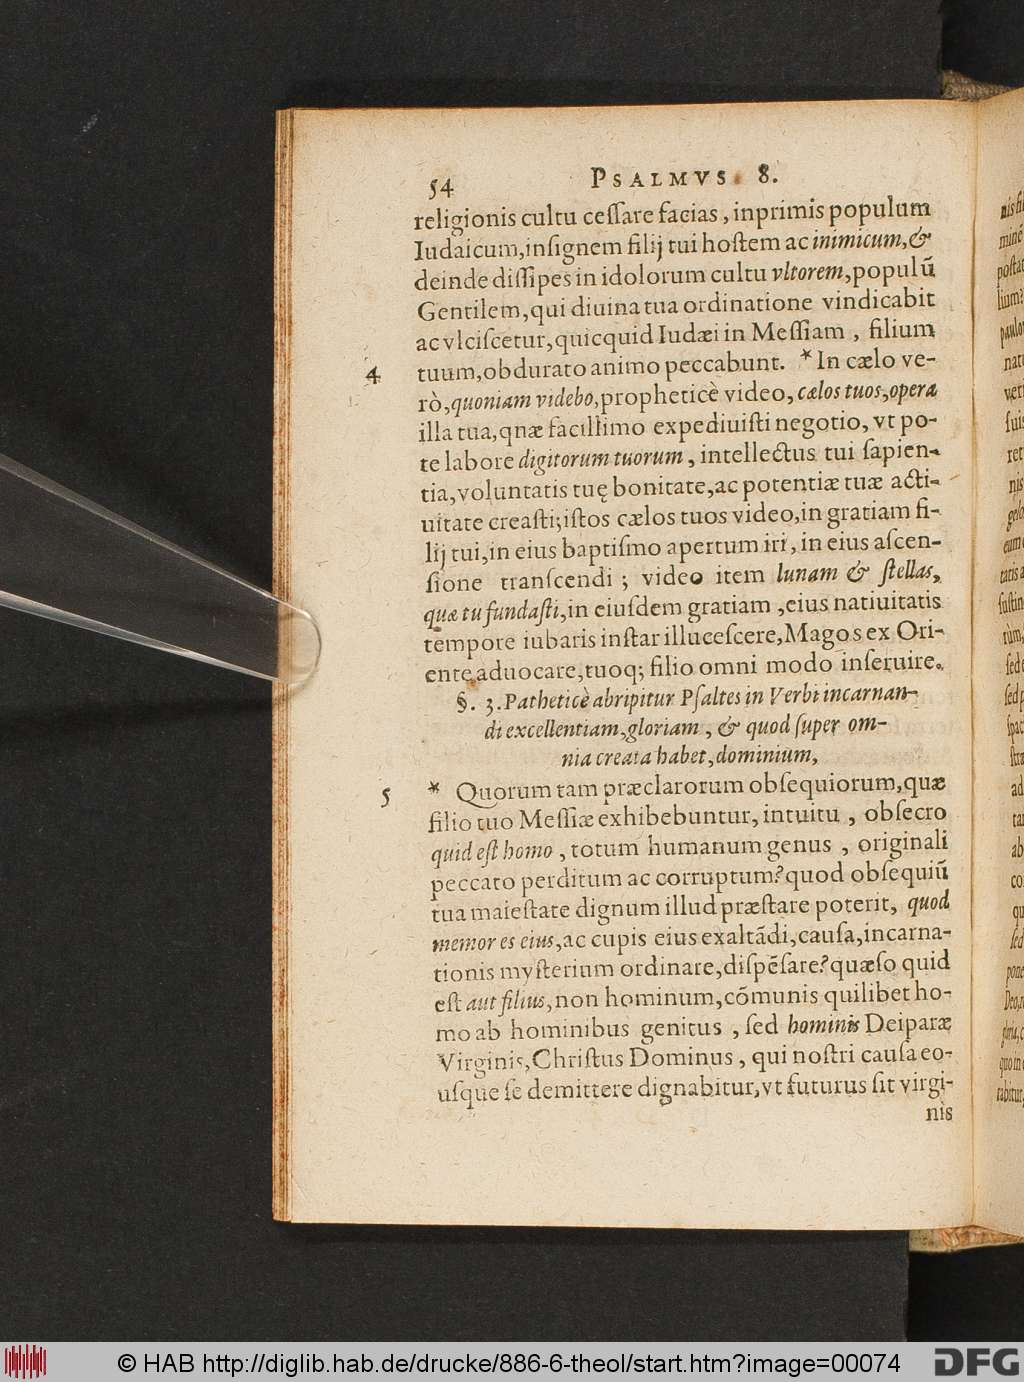 54 PSALMVS 8.
religionis cultu ceſſare facias, inprimis populum
Iudaicum, inſignem filij tui hoſtem ac inimicum, &
deinde diſſipes in idolorum cultu vltorem, populũ
Gentilem, qui diuina tua ordinatione vindicabit
ac vlciſcetur, quicquid Iudæi in Meſſiam, filium
4 tuum, obdurato animo peccabunt. * In cælo ve-
rò, quoniam videbo, propheticè video, cælos tuos, opera
illa tua, qnæ facillimo expediuiſti negotio, vt po-
te labore digitorum tuorum, intellectus tui ſapien-
tia, voluntatis tuę bonitate, ac potentiæ tuæ acti-
uitate creaſti; iſtos cælos tuos video, in gratiam fi-
lij tui, in eius baptiſmo apertum iri, in eius aſcen-
ſione tranſcendi; video item lunam & ſtellas,
quæ tu fundaſti, in eiuſdem gratiam, eius natiuitatis
tempore iubaris inſtar illuceſcere, Magos ex Ori-
ente aduocare, tuoq; filio omni modo inſeruire.
§. 3. Patheticè abripitur Pſaltes in Verbi incarnan-
di excellentiam, gloriam, & quod ſuper om-
nia creata habet, dominium,
5 * Quorum tam præclarorum obſequiorum, quæ
filio tuo Meſſiæ exhibebuntur, intuitu, obſecro
quid eſt homo, totum humanum genus, originali
peccato perditum ac corruptum? quod obſequiũ
tua maieſtate dignum illud præſtare poterit, quod
memor es eius, ac cupis eius exaltãdi, cauſa, incarna-
tionis myſterium ordinare, diſpẽſare? quæſo quid
eſt aut filius, non hominum, cõmunis quilibet ho-
mo ab hominibus genitus, ſed hominis Deiparæ
Virginis, Chriſtus Dominus, qui noſtri cauſa eo-
uſque ſe demittere dignabitur, vt futurus ſit virgi-
nis
© HAB http://diglib.hab.de/drucke/886-6-theol/start.htm?image=00074 DFG